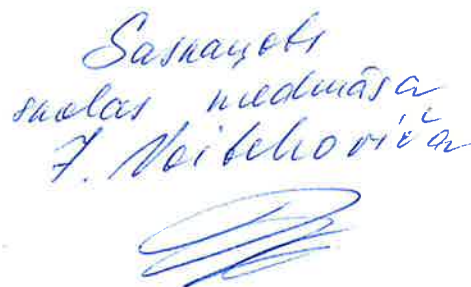 Saskaņots
skolas medmāsa
Ž. Voitehoviča